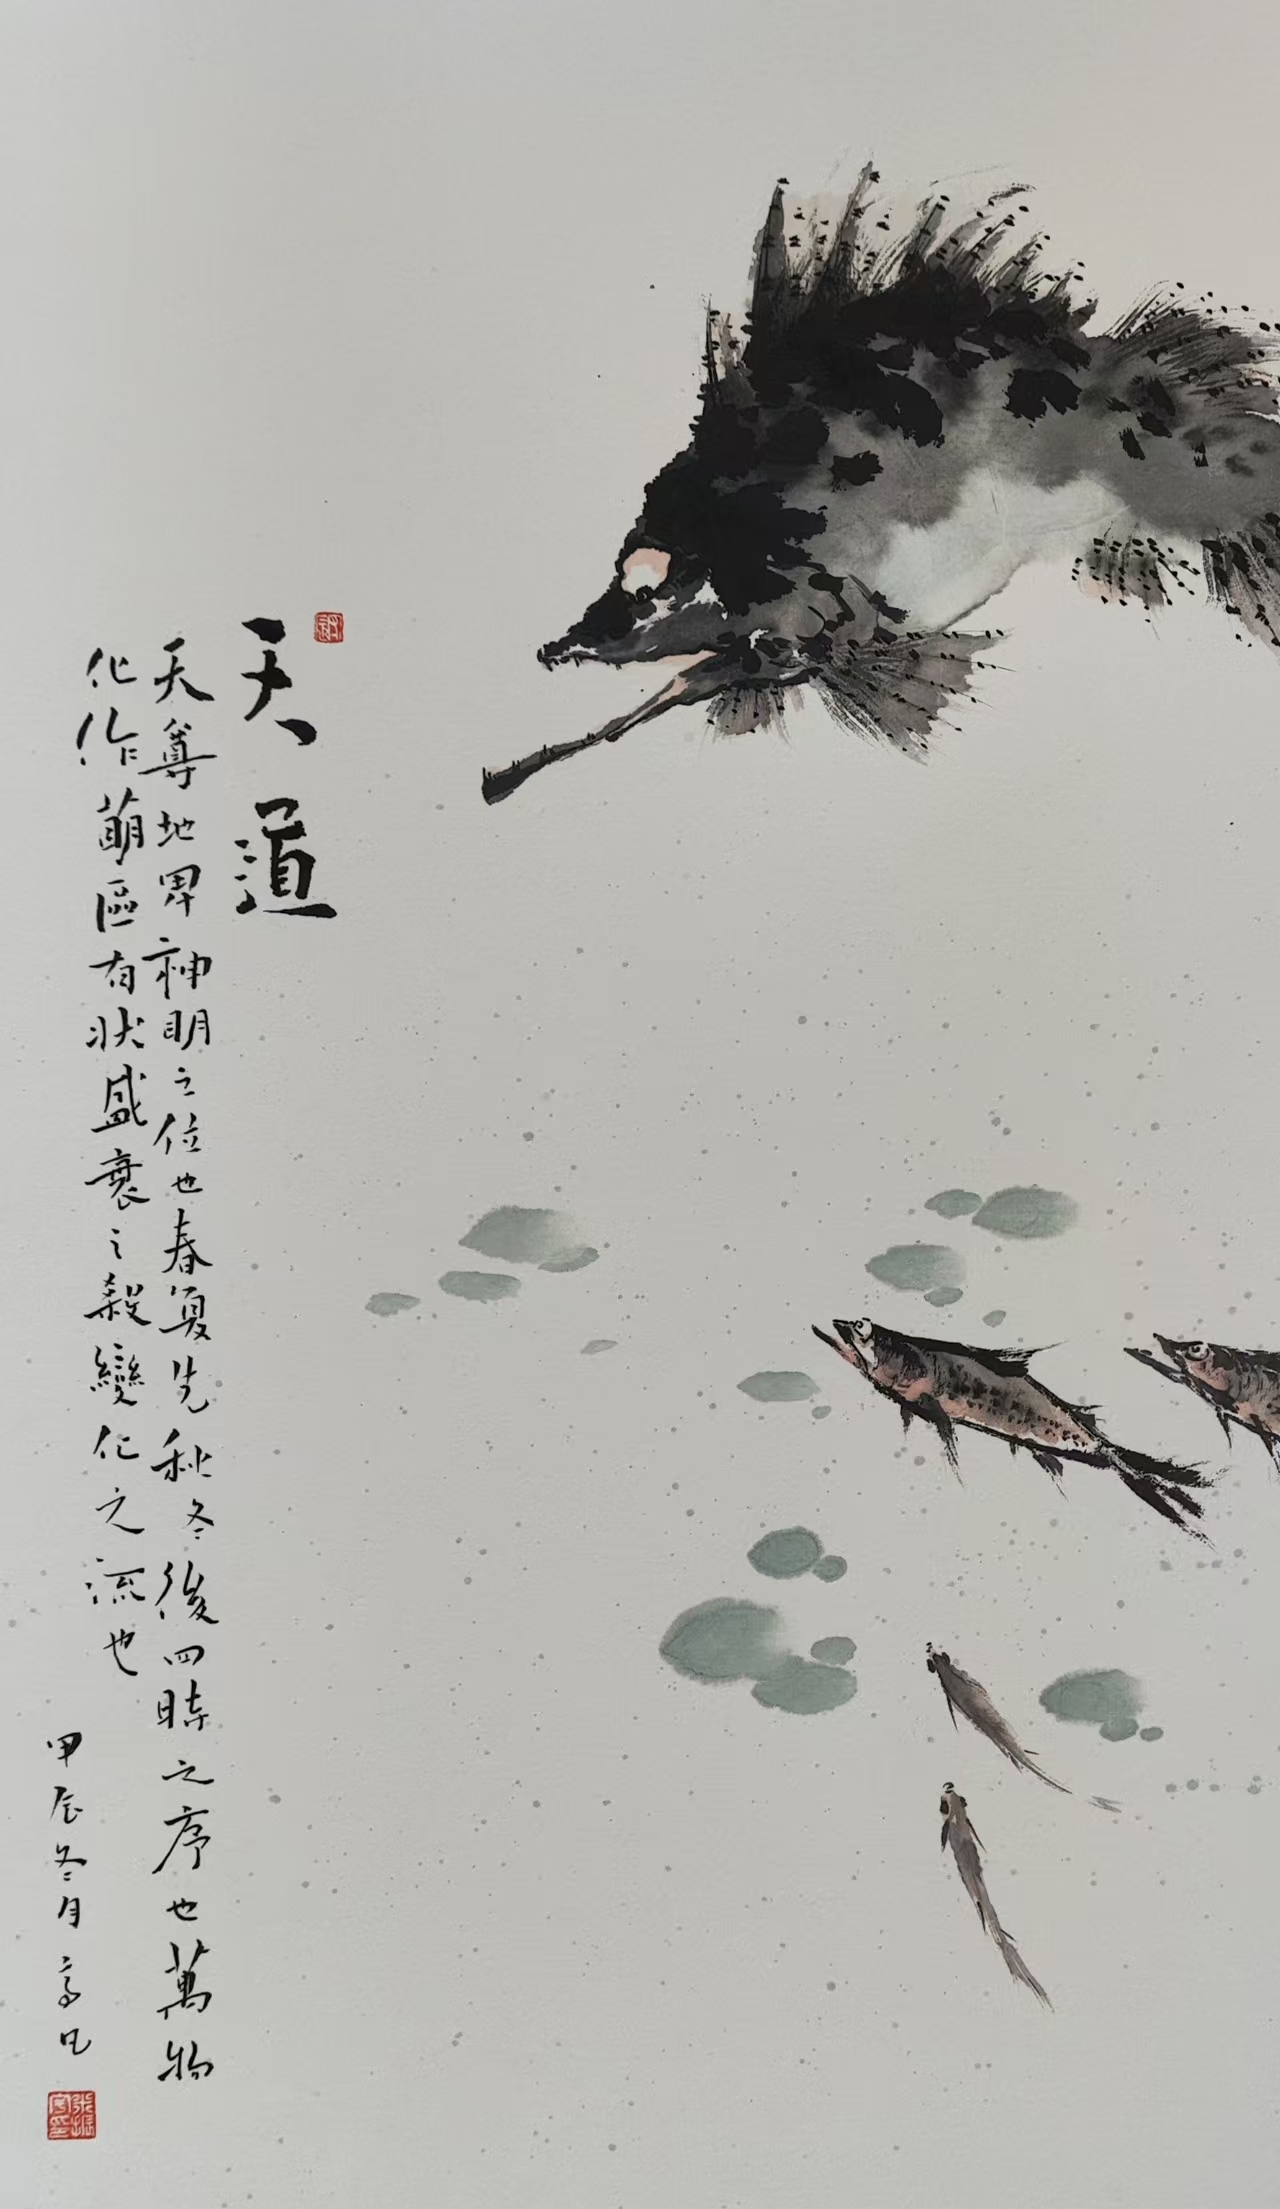 天道
天尊地卑神明之位也春夏先秋冬後四時之序也萬物
化作萌區有狀盛衰之殺變化之流也
甲辰冬月